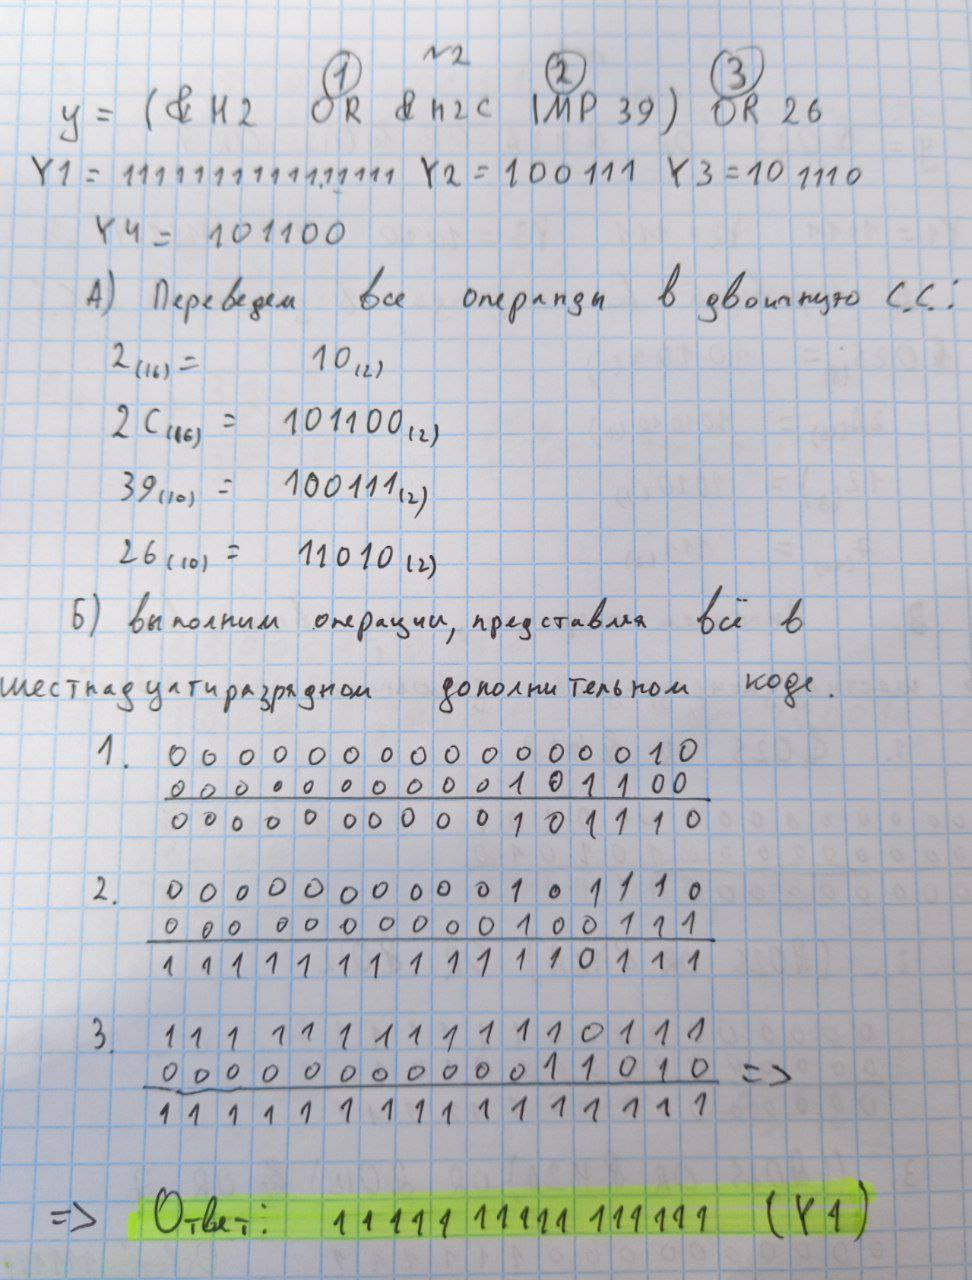 №2
① ② ③
y = (&H2 OR &H2C IMP 39) OR 26
Y1 = 1111111111111111 Y2 = 100111 Y3 = 101110
Y4 = 101100
А) Переведем все операнды в двоичную С.С.:
2(16) = 10(2)
2C(16) = 101100(2)
39(10) = 100111(2)
26(10) = 11010(2)
Б) выполним операции, представляя всё в
шестнадцатиразрядном дополнительном коде.
1. 0 0 0 0 0 0 0 0 0 0 0 0 0 0 1 0
0 0 0 0 0 0 0 0 0 0 1 0 1 1 0 0
0 0 0 0 0 0 0 0 0 0 1 0 1 1 1 0
2. 0 0 0 0 0 0 0 0 0 0 1 0 1 1 1 0
0 0 0 0 0 0 0 0 0 0 1 0 0 1 1 1
1 1 1 1 1 1 1 1 1 1 1 1 0 1 1 1
3. 1 1 1 1 1 1 1 1 1 1 1 1 0 1 1 1
0 0 0 0 0 0 0 0 0 0 0 1 1 0 1 0 =>
1 1 1 1 1 1 1 1 1 1 1 1 1 1 1 1
=> Ответ: 11111 11111 111111 (Y1)